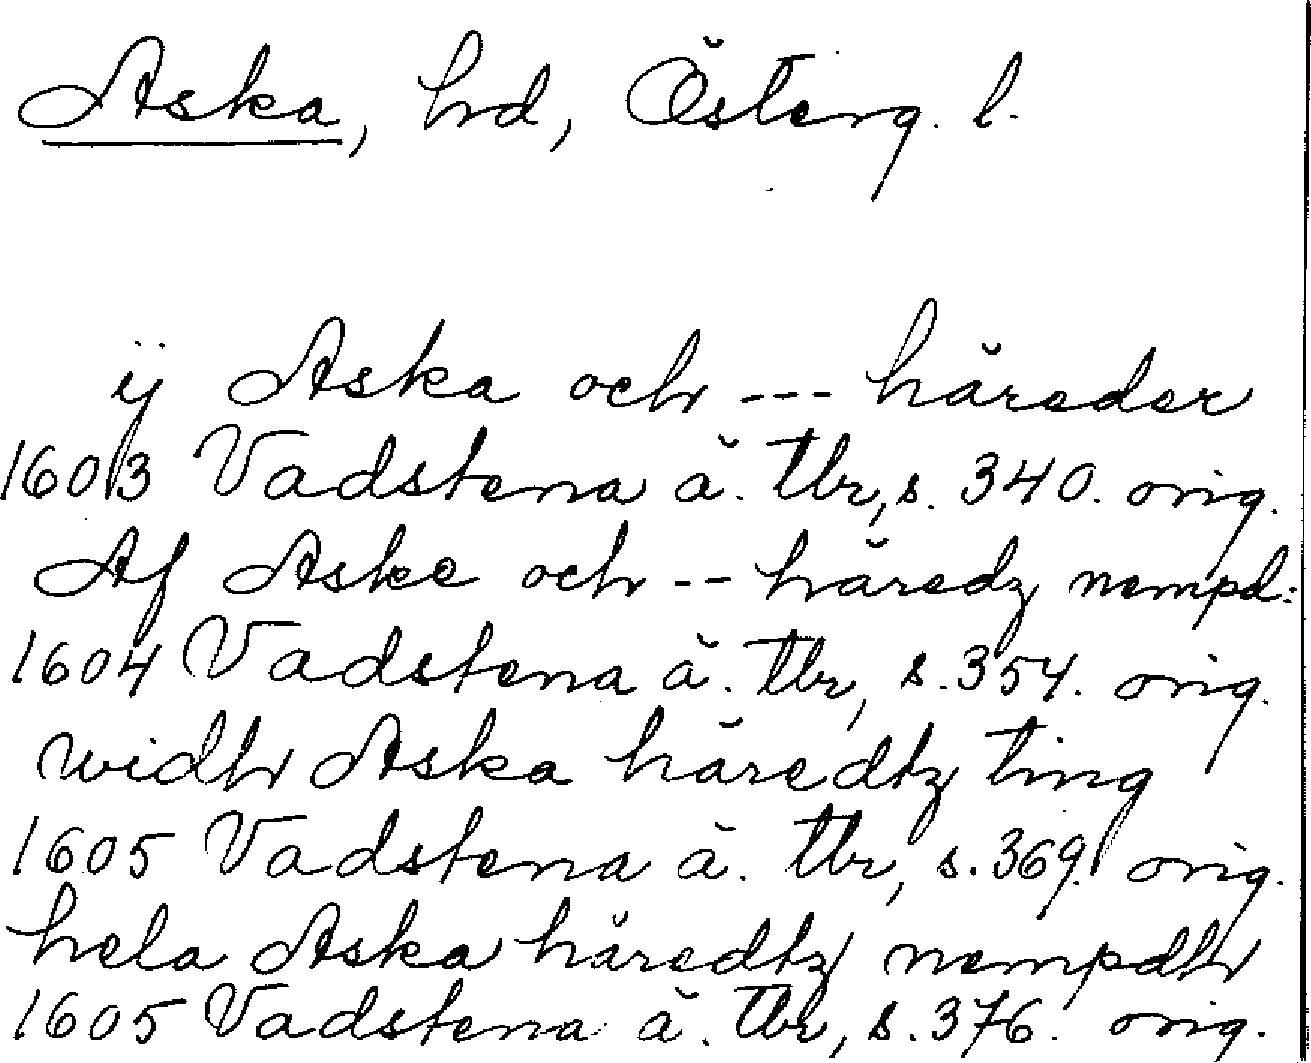 Aska, hd, Österg. l.
ÿ Aska och --- häreder
1603 Vadstena ä. tbr, s. 340. orig.
Af Aske och -- häredz nempd:
1604 Vadstena ä. tbr, s. 354. orig.
widh Aska häredtz ting
1605 Vadstena ä. tbr, s. 369. orig.
hela Aska häredtz nempdh
1605 Vadstena ä. tbr, s. 376. orig.